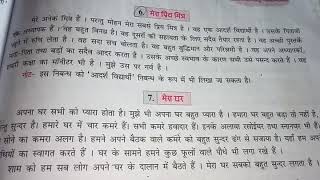 6. मेरा प्रिय मित्र
मेरे अनेक मित्र हैं । परन्तु मोहन मेरा सबसे प्रिय मित्र है । वह एक आदर्श विद्यार्थी है । उसके पिताजी
में जाँच लेता है । वह बहुत विनम्र है । वह दूसरों की सहायता के लिए सदैव तैयार रहता है । वह अच्छी पुस्तकें
है । वह सदा सच बोलता है। वह बहुत बुद्धिमान और परिश्रमी है । वह अपने अध्यापकों,
माता-पिता तथा बड़ों का सदैव आदर करता है । उसके अच्छे स्वभाव के कारण सभी उसे पसन्द करते हैं । वह
हमारी कक्षा का मॉनीटर भी है । मुझे उस पर गर्व है ।
नोट- इस निबन्ध को 'आदर्श विद्यार्थी' निबन्ध के रूप में भी लिखा जा सकता है।
7. मेरा घर
अपना घर सभी को प्यारा होता है। मुझे भी अपना घर बहुत प्यारा है । हमारा घर बहुत बड़ा तो नहीं है,
सुन्दर है। हमारे घर में चार कमरे हैं। सभी कमरे हवादार हैं। इनके अलावा रसोईघर तथा स्नानघर भी हैं।
का कमरा अलग है। हमने अपने बैठक वाले कमरे को बहुत सुन्दर ढंग से सजा रखा है । यहाँ हम अपने
का स्वागत करते हैं । घर के सामने हमने कुछ फूलों वाले पौधे भी लगा रखे हैं ।
शाम को हम सब लोग अपने घर के दालान में बैठते हैं । मेरा घर सबको बहुत सुन्दर लगता है ।